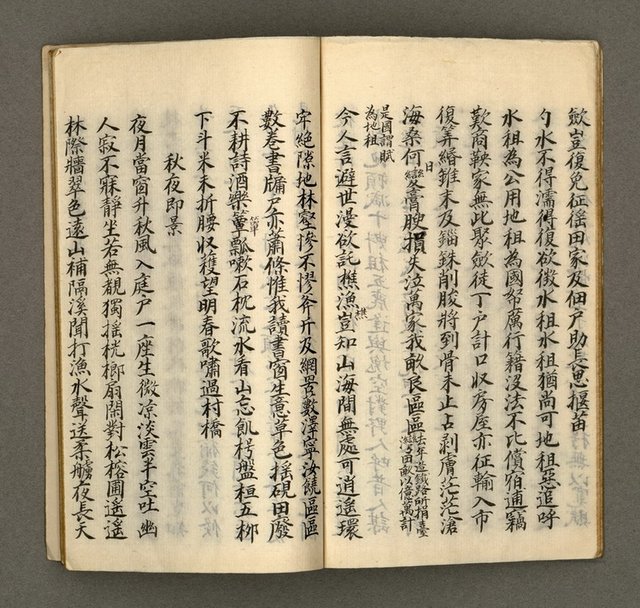 歛豈復免征徭田家及佃戶助長思揠苗
勺水不得濡得復欲徵水租水租猶尚可地租惡追呼
水租為公用地租為國帑厲行籍沒法不比償宿逋竊
歎商鞅家無此聚歛徒丁戶計口收房屋亦征輸入市
復筭緡錐末及錙銖削朘將到骨未止占剥膚茫茫滄
海桑何日變膏腴損失泣萬家我畝良區區去年造鐵路所捐臺灣召田畝以億萬計
是國謂賦為地租
今人言避世漫欲託樵漁樵豈知山海間無處可逍遙環
牢絕隙地林壑慘不摎斧斤及網罟數澤寧汝饒區區
數卷書牖戶亦蕭條惟我讀書窗生意草色搖硯田廢
不耕詩酒樂簞簞瓢嗽石枕流水看山忘飢枵盤桓五柳
下斗米未折腰收穫望明春歌嘯過村橋
秋夜即景
夜月當窗升秋風入庭戶一座生微凉淡雲半空吐幽
人寂不寐靜坐若無覩獨搖桄榔扇閑對松榕圃遥遥
林際牆翠色遠山補隔溪聞打漁水聲送柔艣夜長天